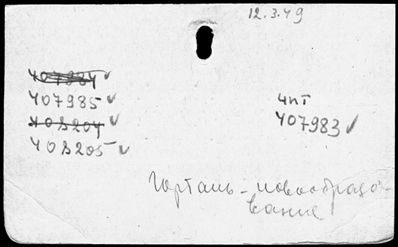 12.3.49
407984 ✓
407985 ✓
408204 ✓
408205 ✓
4пт
407983 ✓
Гортань - новообразо-
вание